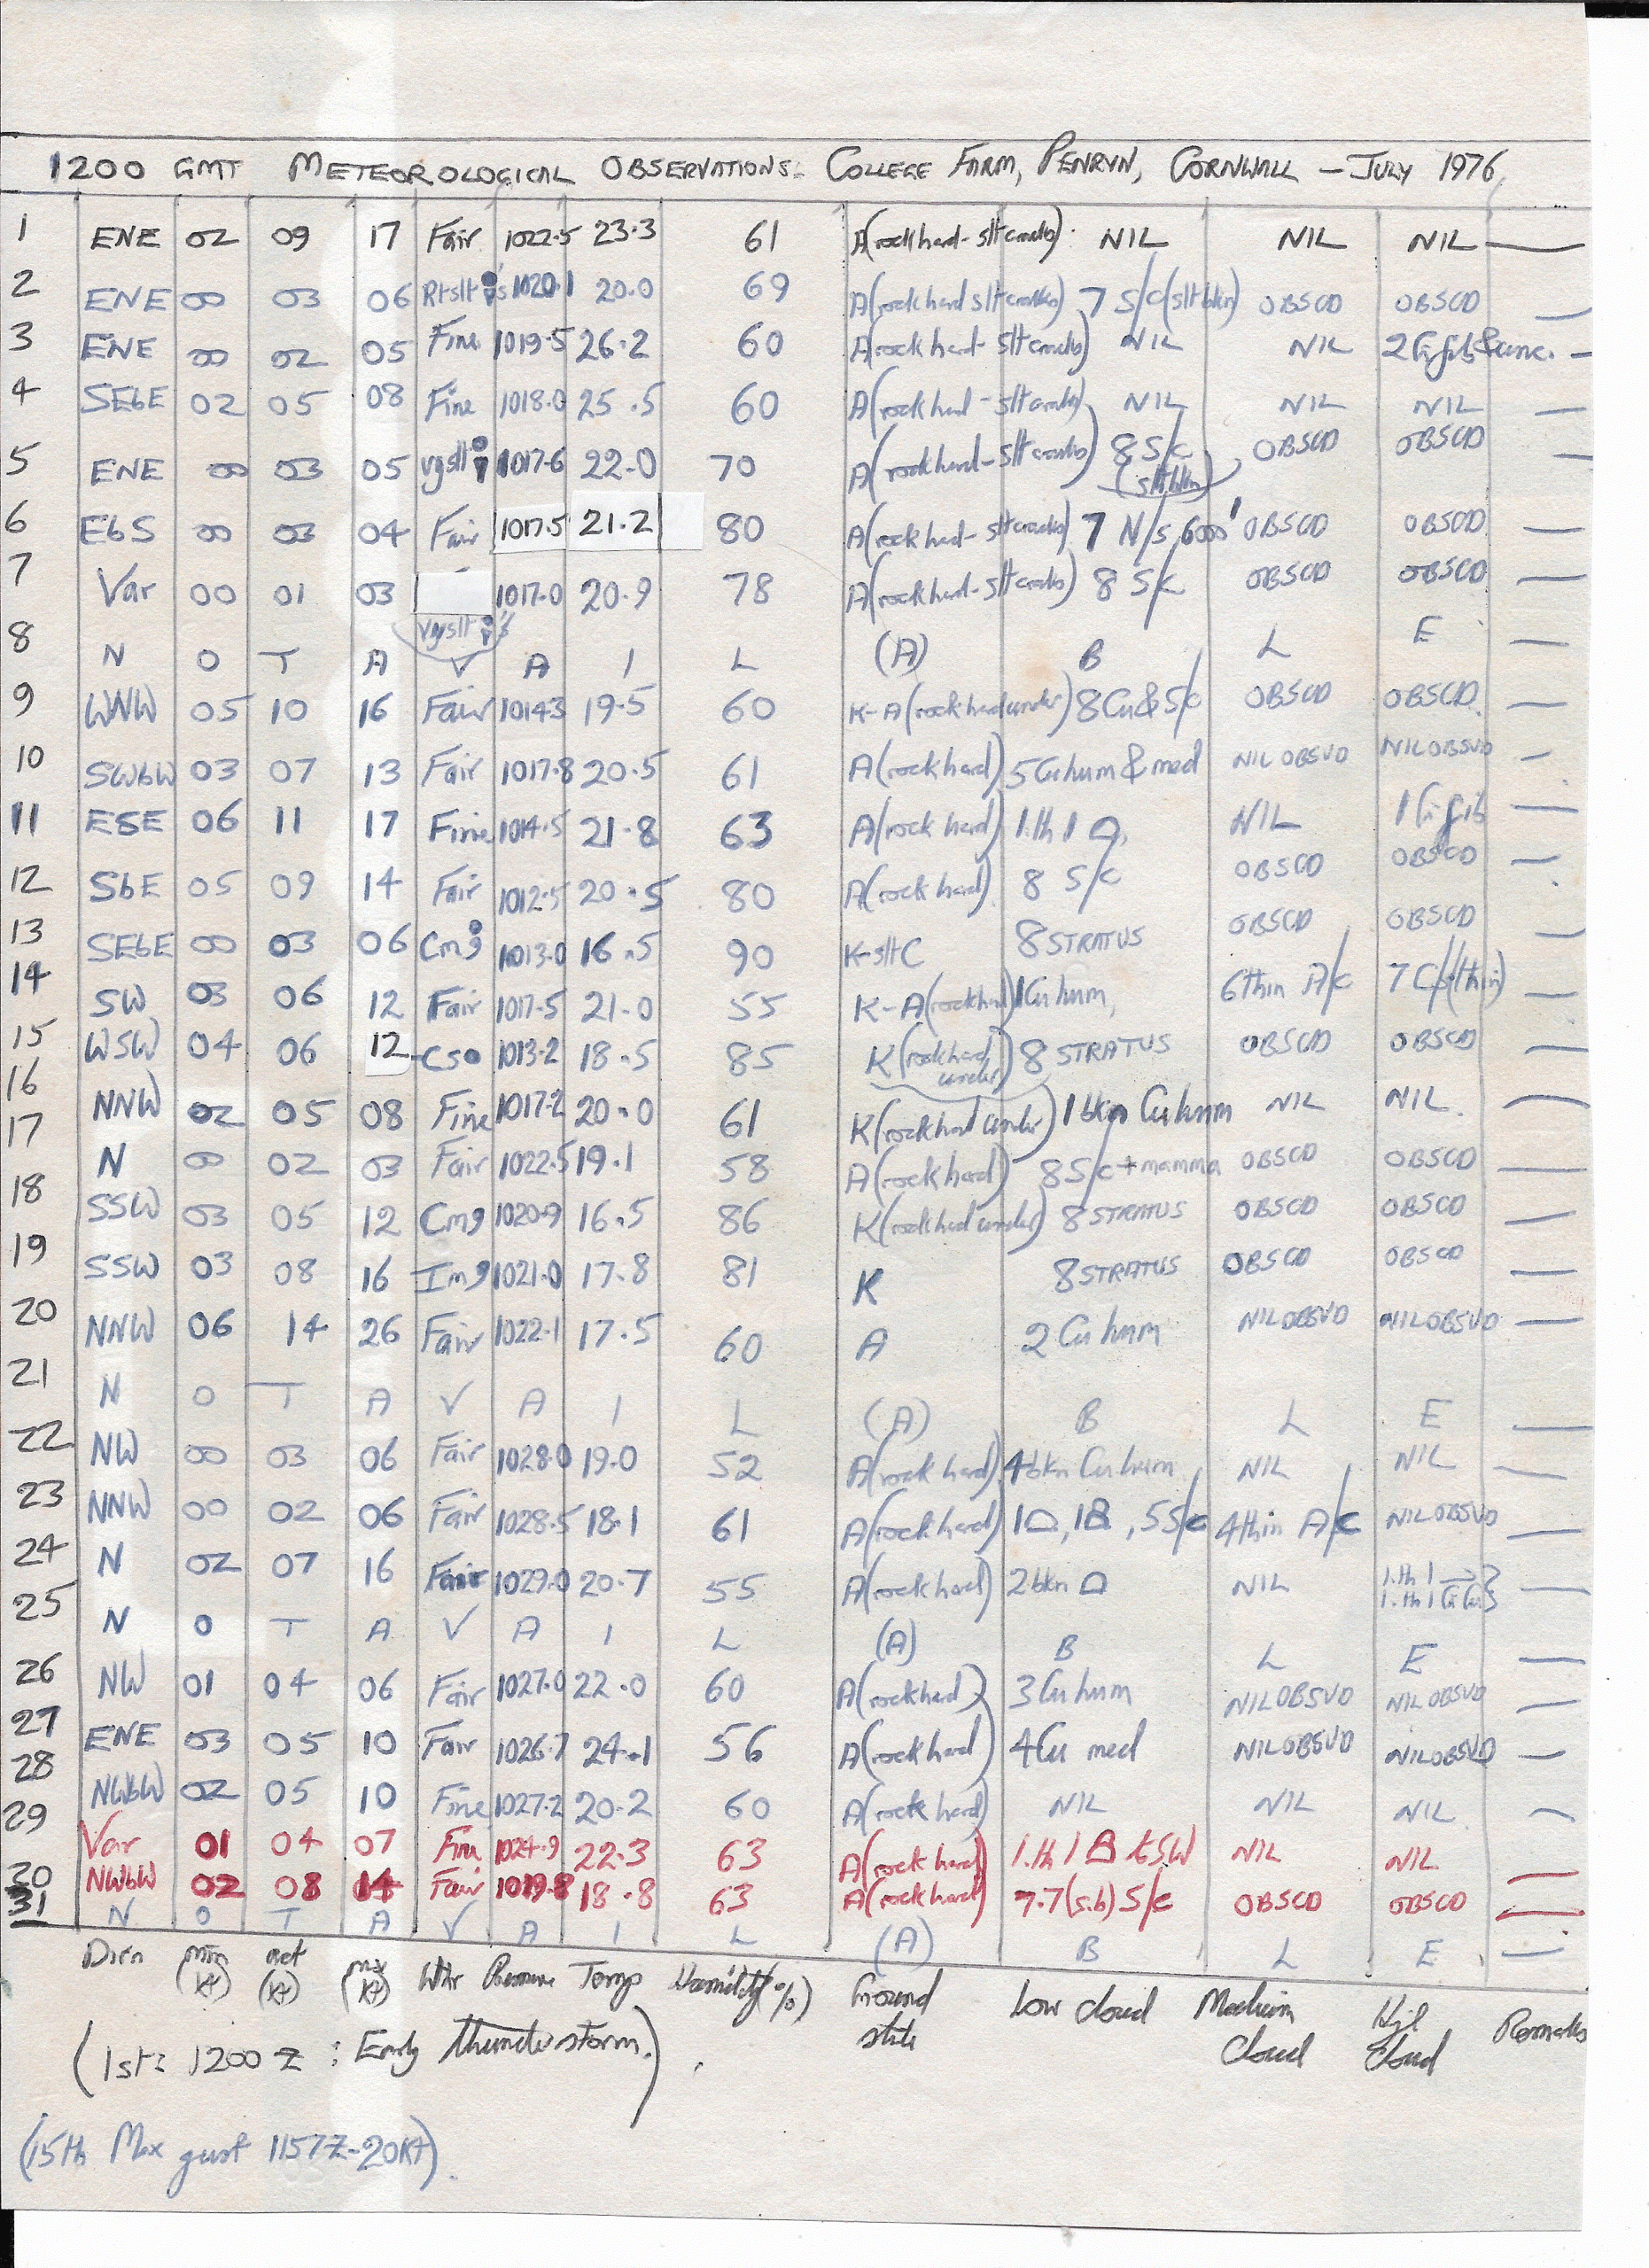 1200 GMT METEOROLOGICAL OBSERVATIONS: COLLEGE FARM, PENRYN, CORNWALL – JULY 1976
1 ENE 02 09 17 Fair 1022.5 23.3 61 A(rock hard - slt cracks) NIL NIL NIL —
2 ENE 00 03 06 1020.1 20.0 69 A(rock hard slt cracks) 7 S/c (slt bkn) OBSCD OBSCD —
3 ENE 00 02 05 Fine 1019.5 26.2 60 A(rock hard - slt cracks) NIL NIL 2 Ci fib & unc. —
4 SEbE 02 05 08 Fine 1018.0 25.5 60 A(rock hard - slt cracks) NIL NIL NIL —
5 ENE 00 03 05 vgslt 1017.6 22.0 70 A(rock hard - slt cracks) 8 S/c (slt bkn) OBSCD OBSCD —
6 EbS 00 03 04 Fair 1017.5 21.2 80 A(rock hard - slt cracks) 7 N/s 6000' OBSCD OBSCD —
7 Var 00 01 03 vgslt 1017.0 20.9 78 A(rock hard - slt cracks) 8 S/c OBSCD OBSCD —
8 N O T A V A I L (A) B L E —
9 WNW 05 10 16 Fair 1014.3 19.5 60 K-A(rock hard under) 8 Cu & S/c OBSCD OBSCD
10 SWbW 03 07 13 Fair 1017.8 20.5 61 A(rock hard) 5 Cu hum & med NIL OBSVD NIL OBSVD —
11 ESE 06 11 17 Fine 1014.5 21.8 63 A(rock hard) 1.th 1 NIL 1 Ci fib —
12 SbE 05 09 14 Fair 1012.5 20.5 80 A(rock hard) 8 S/c OBSCD OBSCD —
13 SEbE 00 03 06 Cm 1013.0 16.5 90 K-slt C 8 STRATUS OBSCD OBSCD —
14 SW 03 06 12 Fair 1017.5 21.0 55 K-A(rock hard) 1 Cu hum, 6 thin A/c 7 C/s (thin) —
15 WSW 04 06 12 1013.2 18.5 85 K(rock hard under) 8 STRATUS OBSCD OBSCD —
16 NNW 02 05 08 Fine 1017.2 20.0 61 K(rock hard under) 1 bkn Cu hum NIL NIL. —
17 N 00 02 03 Fair 1022.5 19.1 58 A(rock hard) 8 S/c + mamma OBSCD OBSCD —
18 SSW 03 05 12 Cm 1020.9 16.5 86 K(rock hard under) 8 STRATUS OBSCD OBSCD —
19 SSW 03 08 16 Im 1021.0 17.8 81 K 8 STRATUS OBSCD OBSCD —
20 NNW 06 14 26 Fair 1022.1 17.5 60 A 2 Cu hum NIL OBSVD NIL OBSVD —
21 N O T A V A I L (A) B L E —
22 NW 00 03 06 Fair 1028.0 19.0 52 A(rock hard) 4 bkn Cu hum NIL NIL —
23 NNW 00 02 06 Fair 1028.5 18.1 61 A(rock hard) 1, 1, 5 S/c 4 thin A/c NIL OBSVD —
24 N 02 07 16 Fair 1029.0 20.7 55 A(rock hard) 2 bkn NIL 1.th 1 1.th 1 Ci Cu —
25 N O T A V A I L (A) B L E —
26 NW 01 04 06 Fair 1027.0 22.0 60 A(rock hard) 3 Cu hum NIL OBSVD NIL OBSVD —
27 ENE 03 05 10 Fair 1026.7 24.1 56 A(rock hard) 4 Cu med NIL OBSVD NIL OBSVD —
28 NWbW 02 05 10 Fine 1027.2 20.2 60 A(rock hard) NIL NIL NIL —
29 Var 01 04 07 Fine 1024.9 22.3 63 A(rock hard) 1.th 1 tSW NIL NIL —
30 NWbW 02 08 14 Fair 1019.8 18.8 63 A(rock hard) 7.7 (s.b) S/c OBSCD OBSCD —
31 N O T A V A I L (A) B L E —
Dirn min (kt) act (kt) mx (kt) Wthr Pressure Temp Humidity (%) Ground state Low cloud Medium cloud High cloud Remarks
(1st: 1200 Z : Early thunderstorm.)
(15th Max gust 1157Z-20Kt).